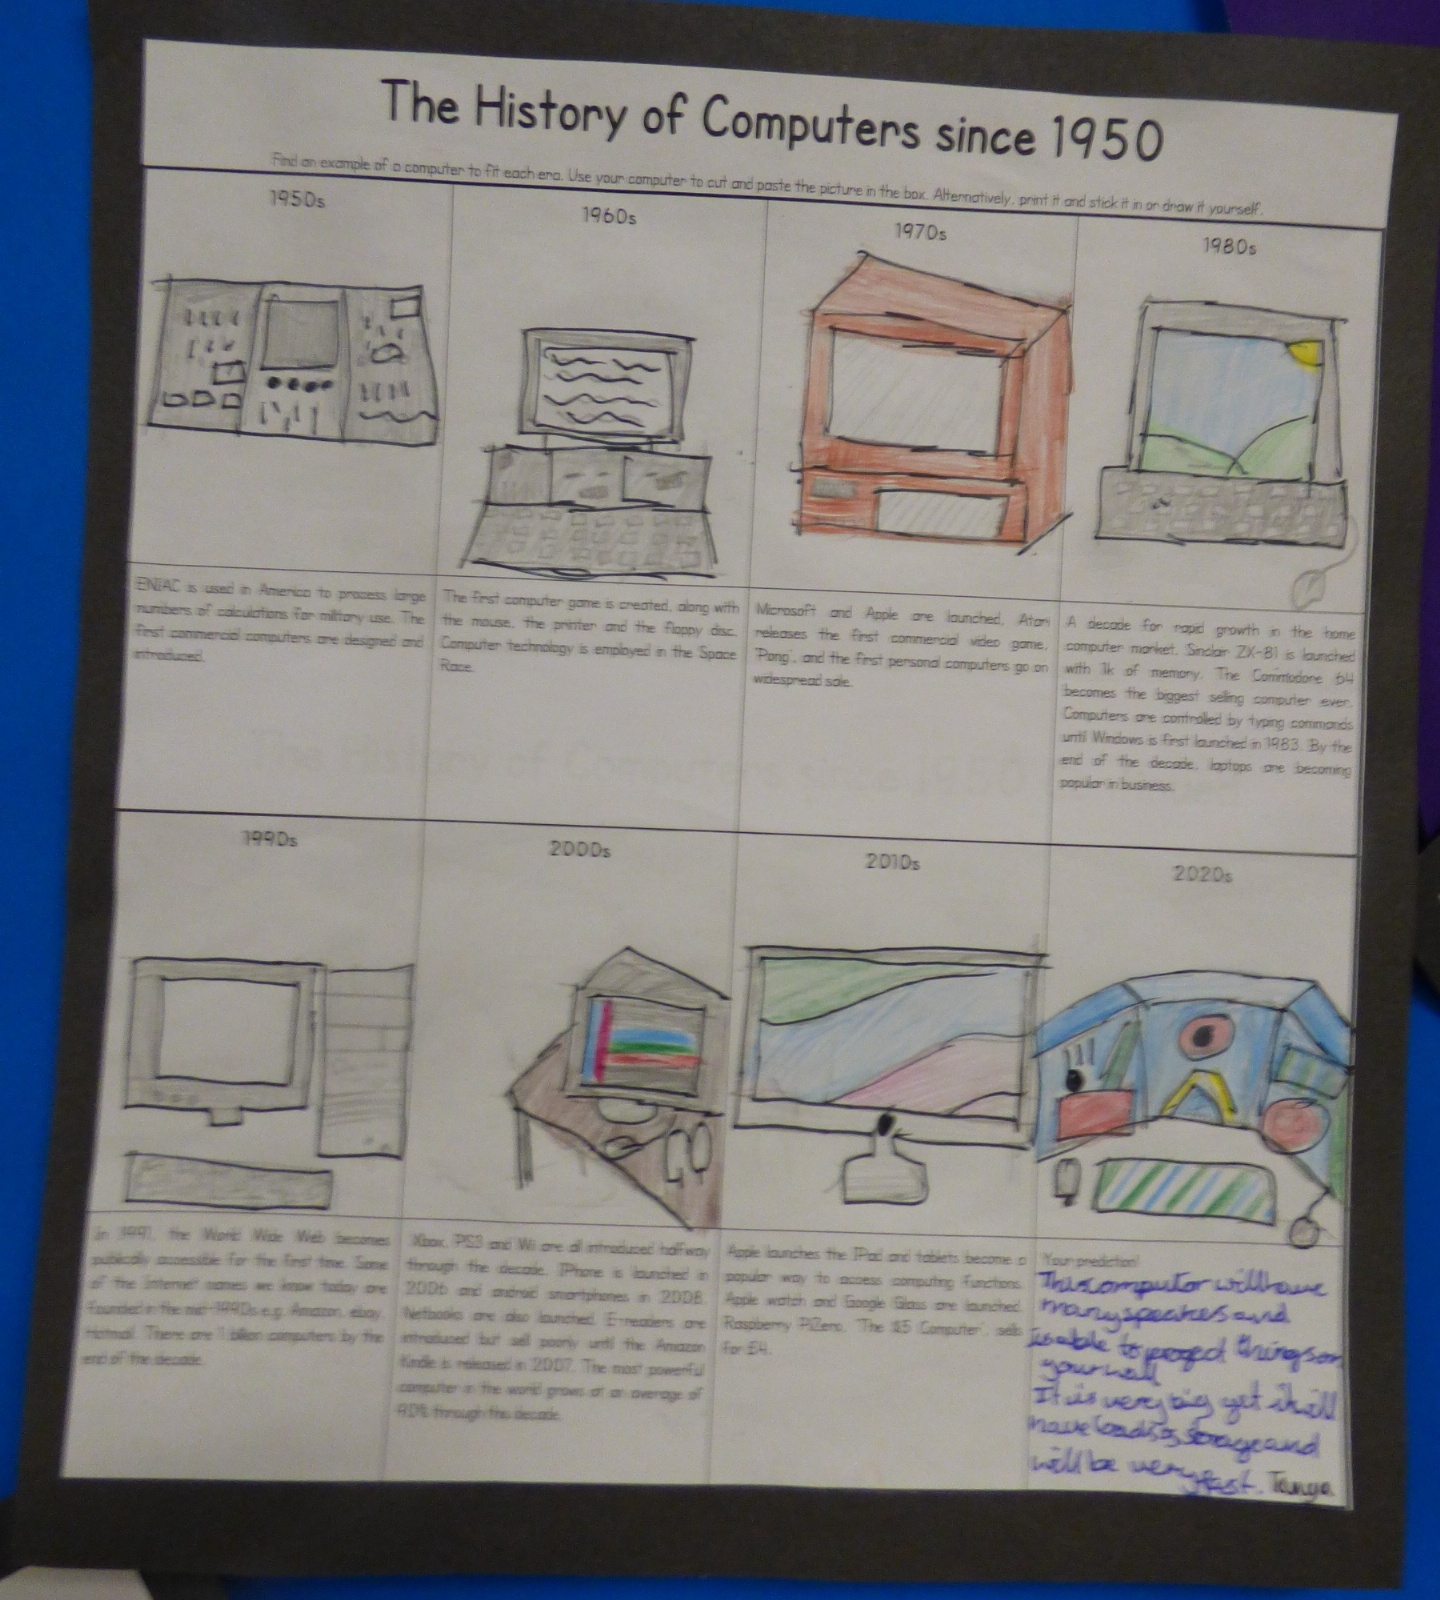 The History of Computers since 1950
Find an example of a computer to fit each era. Use your computer to cut and paste the picture in the box. Alternatively, print it and stick it in or draw it yourself.
1950s
ENIAC is used in America to process large
numbers of calculations for military use. The
first commercial computers are designed and
introduced.
1960s
The first computer game is created, along with
the mouse, the printer and the floppy disc.
Computer technology is employed in the Space
Race.
1970s
Microsoft and Apple are launched, Atari
releases the first commercial video game,
'Pong', and the first personal computers go on
widespread sale.
1980s
A decade for rapid growth in the home
computer market. Sinclair ZX-81 is launched
with 1k of memory. The Commodore 64
becomes the biggest selling computer ever.
Computers are controlled by typing commands
until Windows is first launched in 1983. By the
end of the decade, laptops are becoming
popular in business.
1990s
In 1991, the World Wide Web becomes
publically accessible for the first time. Some
of the Internet names we know today are
founded in the mid-1990s e.g. Amazon, ebay,
Hotmail. There are 1 billion computers by the
end of the decade.
2000s
Xbox, PS3 and Wii are all introduced halfway
through the decade. IPhone is launched in
2006 and android smartphones in 2008.
Netbooks are also launched. E-readers are
introduced but sell poorly until the Amazon
Kindle is released in 2007. The most powerful
computer in the world grows at an average of
90% through the decade.
2010s
Apple launches the IPad and tablets become a
popular way to access computing functions.
Apple watch and Google Glass are launched.
Raspberry PiZero, 'The $5 Computer', sells
for £4.
2020s
Your prediction!
This computor will have
many speakers and
is able to project things on
your wall
It is very big yet it will
have loads of storage and
will be very fast. Tanya